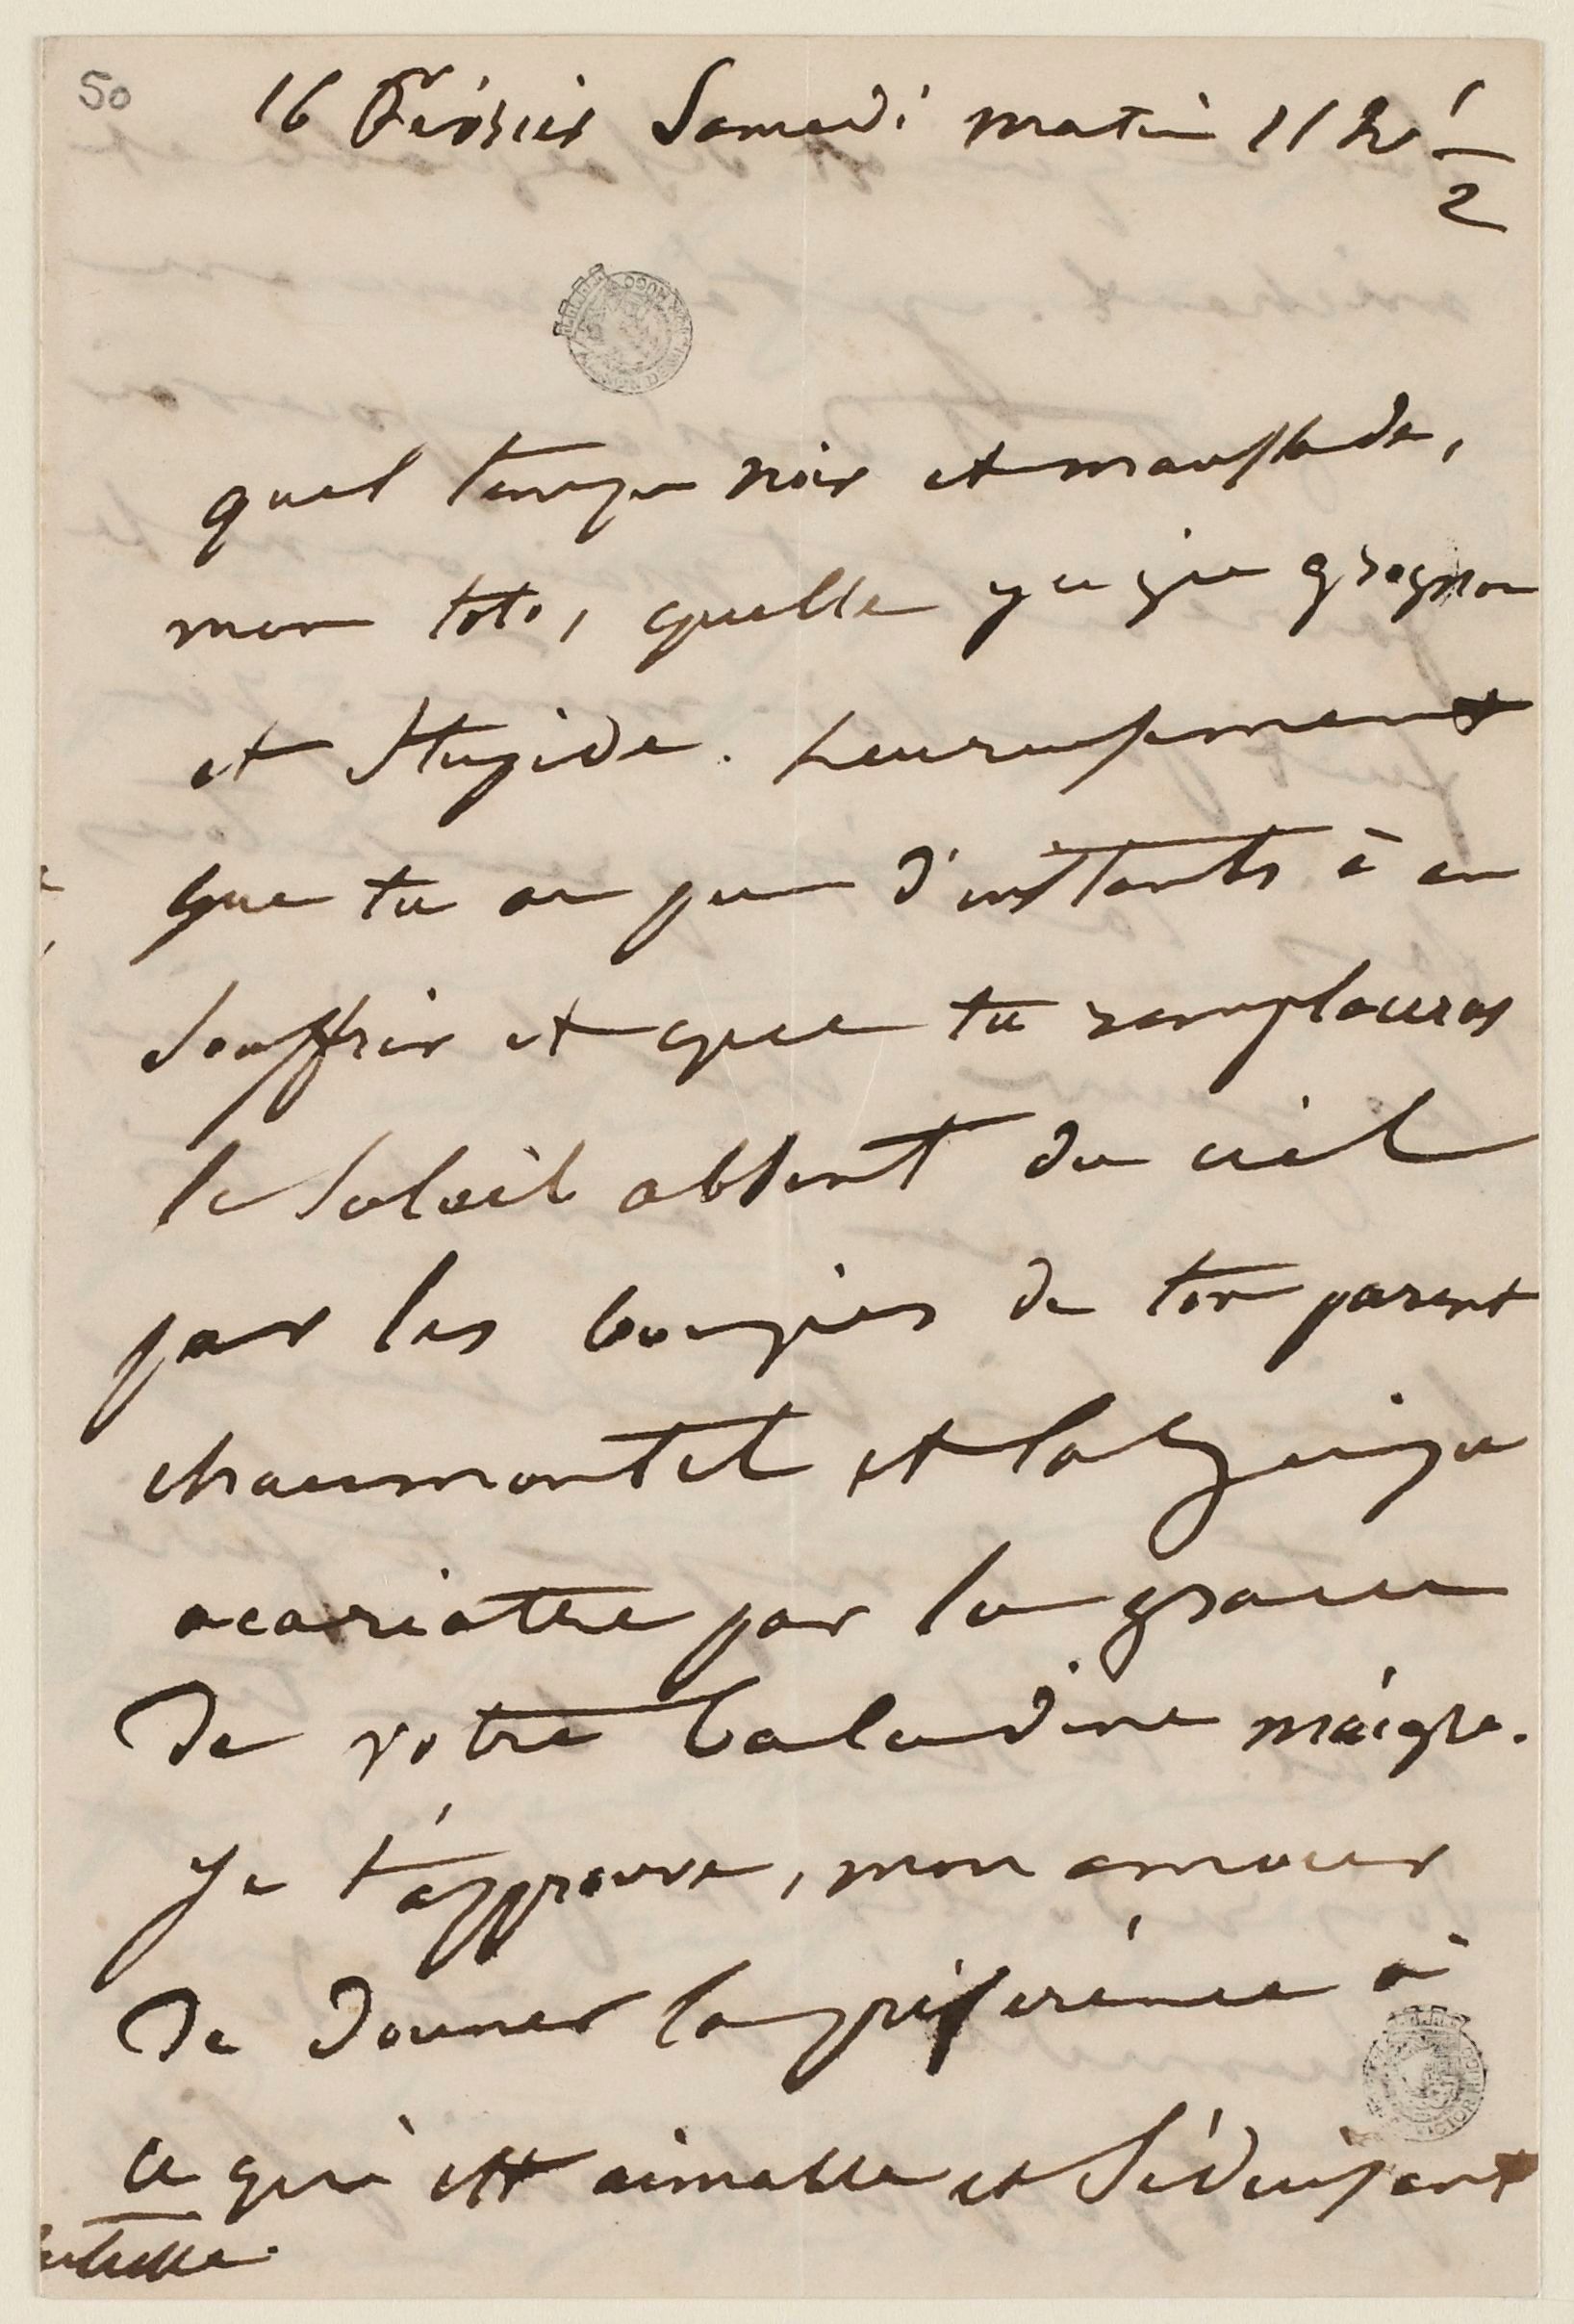 50
16 Février Samedi matin 11 h 1/2
quel temps noir et maussade,
mon toto, quelle juju grognon
et stupide. heureusement
que tu as peu d'instants à en
souffrir et que tu remplaceras
le soleil absent du ciel
par les bougies de ton parent
chaumontel et la juju
acariatre par la grâce
de votre baladine maigre.
Je t'approuve, mon amour
de donner la préférence à
ce qui est aimable et séduisant